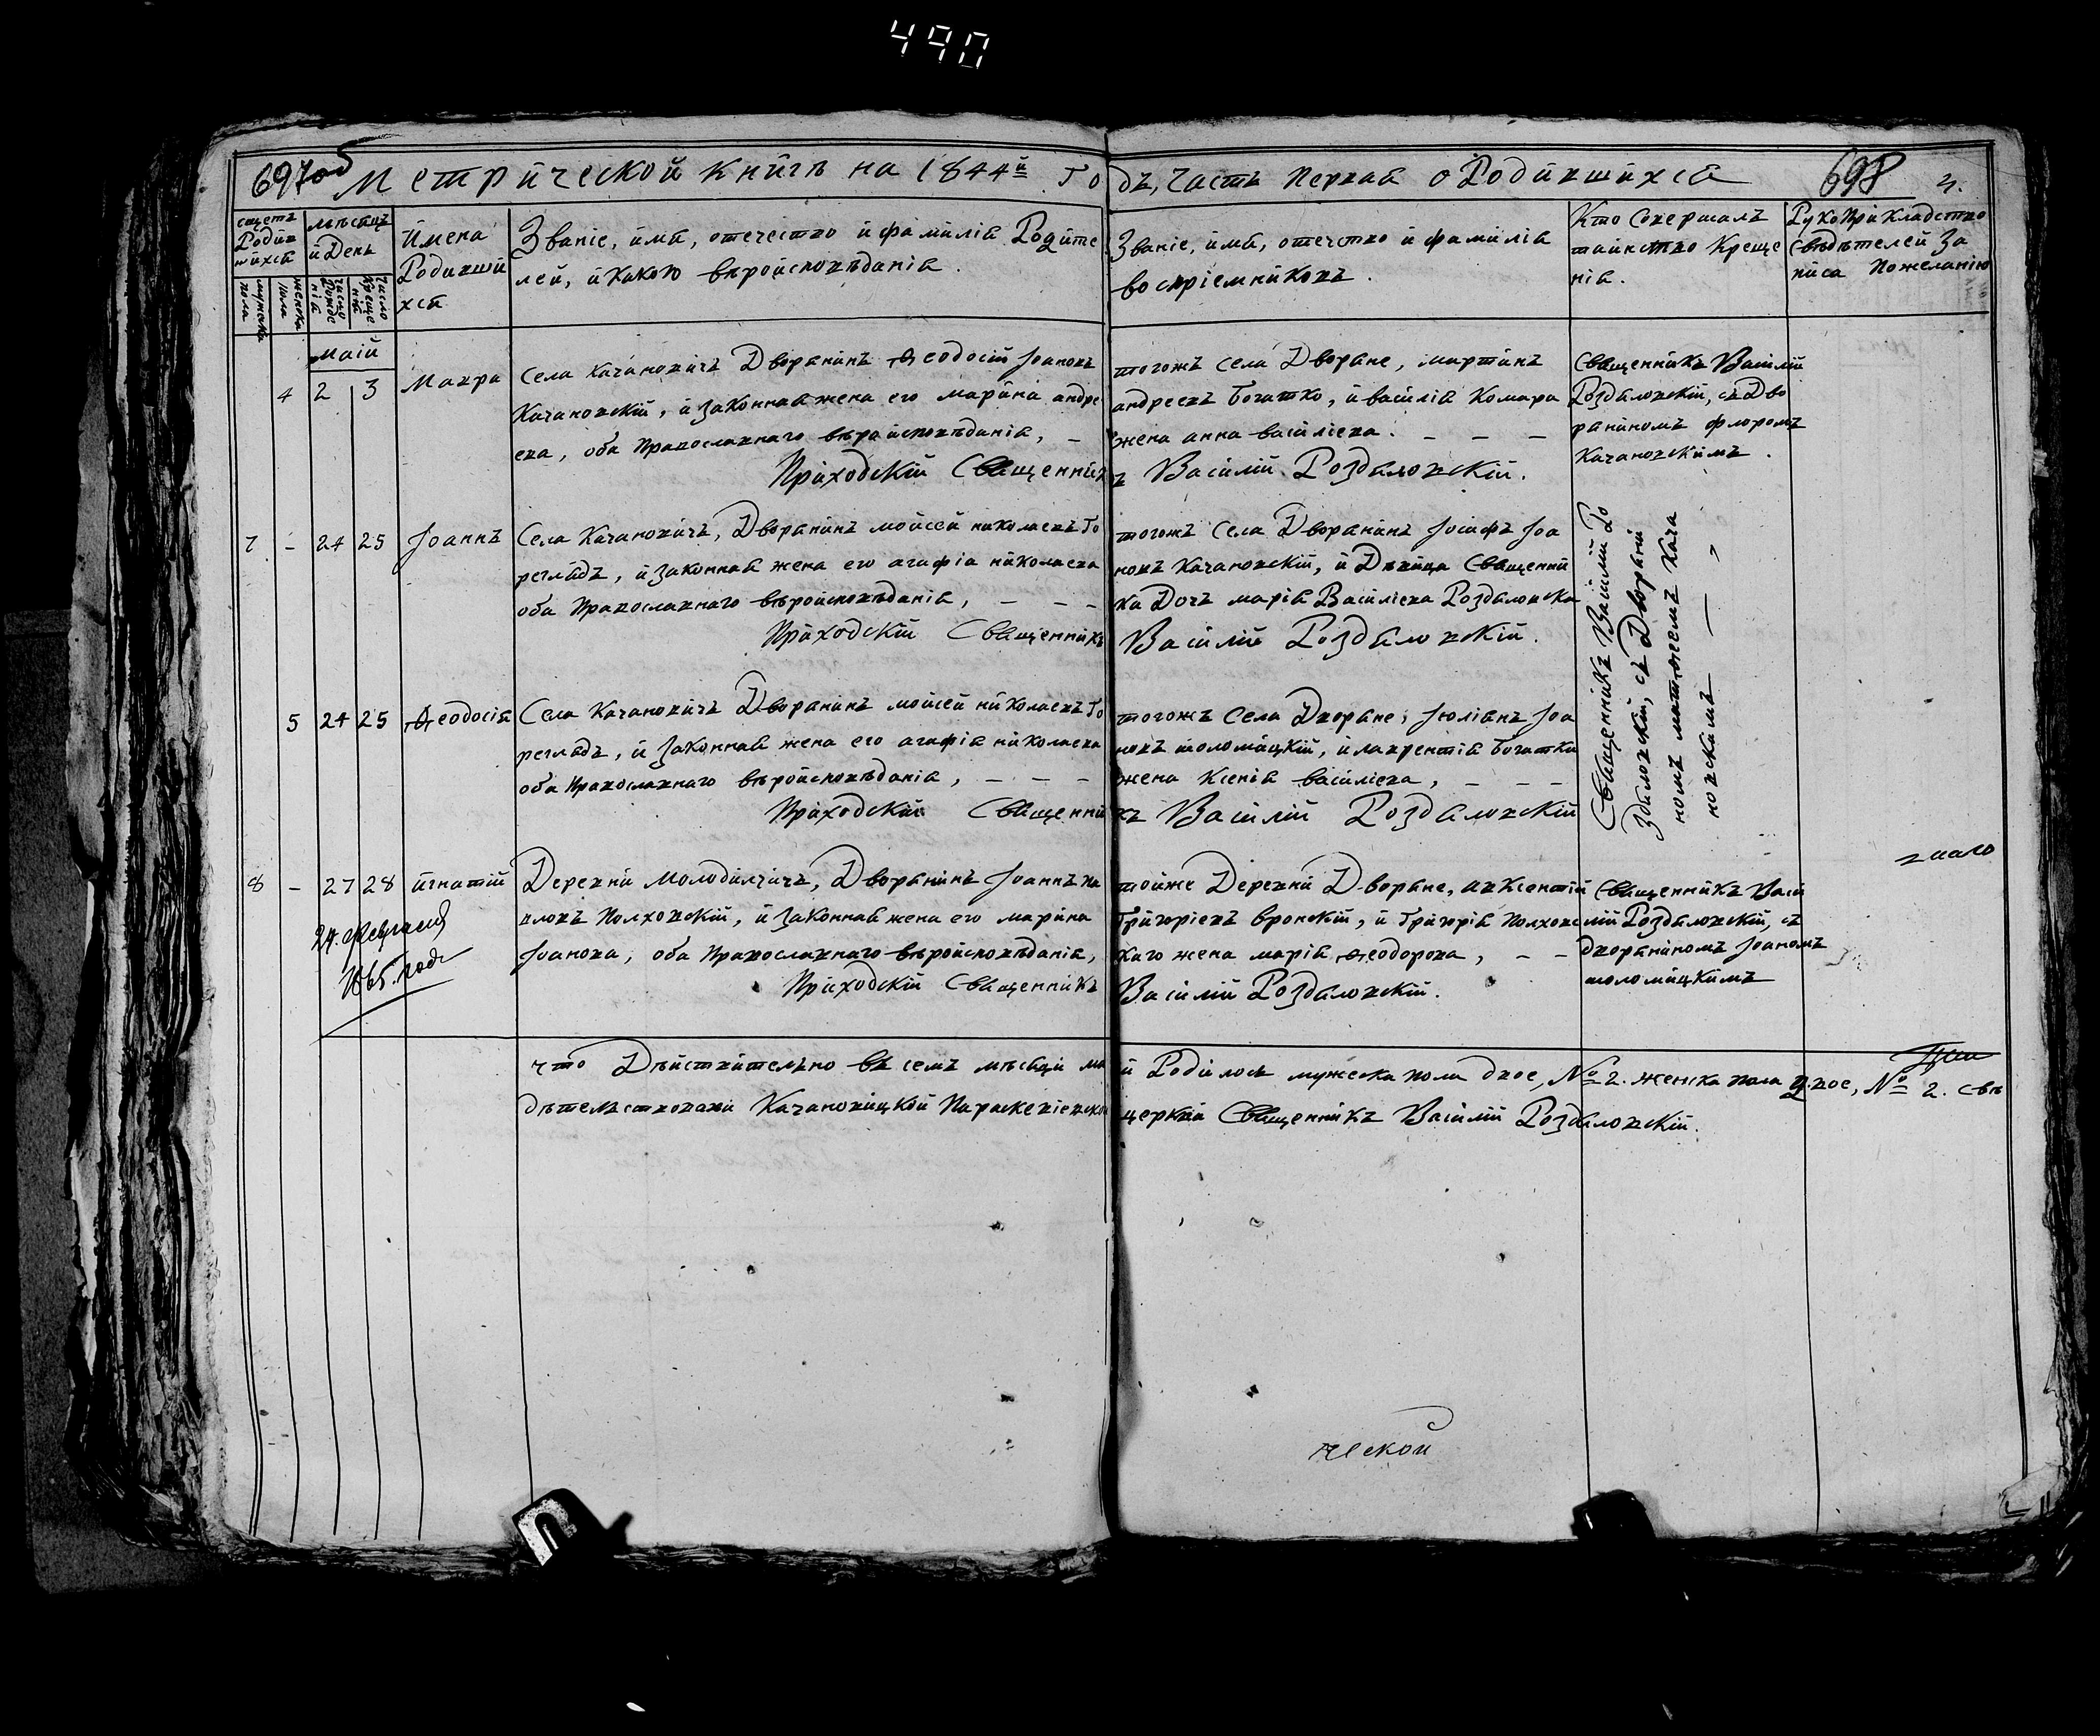 490
697об Метрической книгѣ на 1844й годъ, Часть Первая о Родившихся 698 4.
Сщетъ Родившихся
мужеска пола
женска пола
мѣсяцъ и День
число Рожденія
число Крещенія
Имена Родившихся
Званіе, имя, отечество и фамилія Родителей, и какого вѣроисповѣданія.
Званіе, имя, отечство и фамилія воспріемниковъ.
Кто Совершалъ таинство Крещенія.
РукоПрикладство Свѣдѣтелей записа Пожеланію
Маій
4 2 3 Макра
Села Качановичъ Дворянинъ Ѳеодосій Іоановъ
Качановскій, и законная жена его марина андре
ева, оба Православнаго вѣроисповѣданія, –
Приходскій Священникъ Василій Роздяловскій.
тогожъ Села Дворяне, мартинъ
андреевъ Богатко, и василія Комара
жена анна василіева. – – –
Священникъ Василій
Роздяловскій, съ Дво
раниномъ флоромъ
Качановскимъ.
7 – 24 25 Іоаннъ
Села Качановичъ, Дворянинъ мойсей николаевъ Го
реглядъ, и законная жена его агафія николаева
оба Православнаго вѣроисповѣданія, – – –
Приходскій Священникъ Василій Роздяловскій.
тогожъ Села Дворянинъ Іосифъ Іоа
новъ Качановскій, и Дѣвица Священни
ка Дочъ марія Василіева Роздяловска
Священникъ Василій Ро
здяловскій, съ Дворяни
номъ матфеемъ Кача
новскимъ – „
5 24 25 Ѳеодосія
Села Качановичъ Дворянинъ мойсей николаевъ Го
реглядъ, и законная жена его агафія николаева
оба Православнаго вѣроисповѣданія, – – –
Приходскій Священникъ Василій Роздяловскій
тогожъ Села Дворяне, Іюліанъ Іоа
новъ шоломицкій, и лаврентія Богатки
жена Ксенія василіева, – – –
8 – 27 28 игнатій
Деревни Молодилчичъ, Дворянинъ Іоаннъ па
вловъ Полховскій, и законная жена его марина
Іоанова, оба Православнаго вѣроисповѣданія,
Приходскій Священникъ Василій Роздяловскій.
тойже Деревни Дворяне, авксентій
Григоріевъ вронскій, и Григорія Полховс
каго жена марія Ѳеодорова, – –
Священникъ Васи
лій Роздяловскій, съ
дворяниномъ Іоаномъ
шоломицкимъ
24. февраля
1865. года
что Дѣйствительно въ семъ мѣсяци маи Родилось мужеска пола двое, № 2. женска пола двое, № 2. Свѣ
дѣтельствовахи Качановицкой Параскевіевской церкви Священникъ Василій Роздяловскій.
ческой